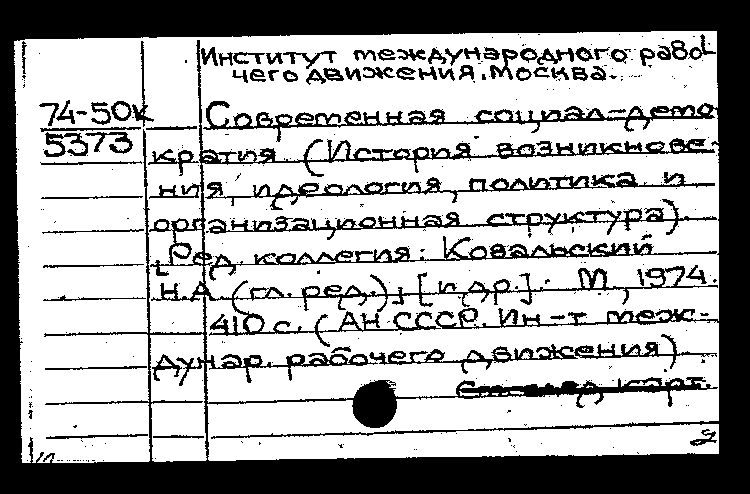 Институт международного рабо-
чего движения. Москва.
74-50к
5373
Современная социал-демо
кратия (История возникнове-
ния, идеология, политика и
организационная структура).
Ред. коллегия: Ковальский
Н.А. (гл. ред.), [и др.]. М., 1974.
410 с. (АН СССР. Ин-т меж-
дунар. рабочего движения).
См. след. карт.